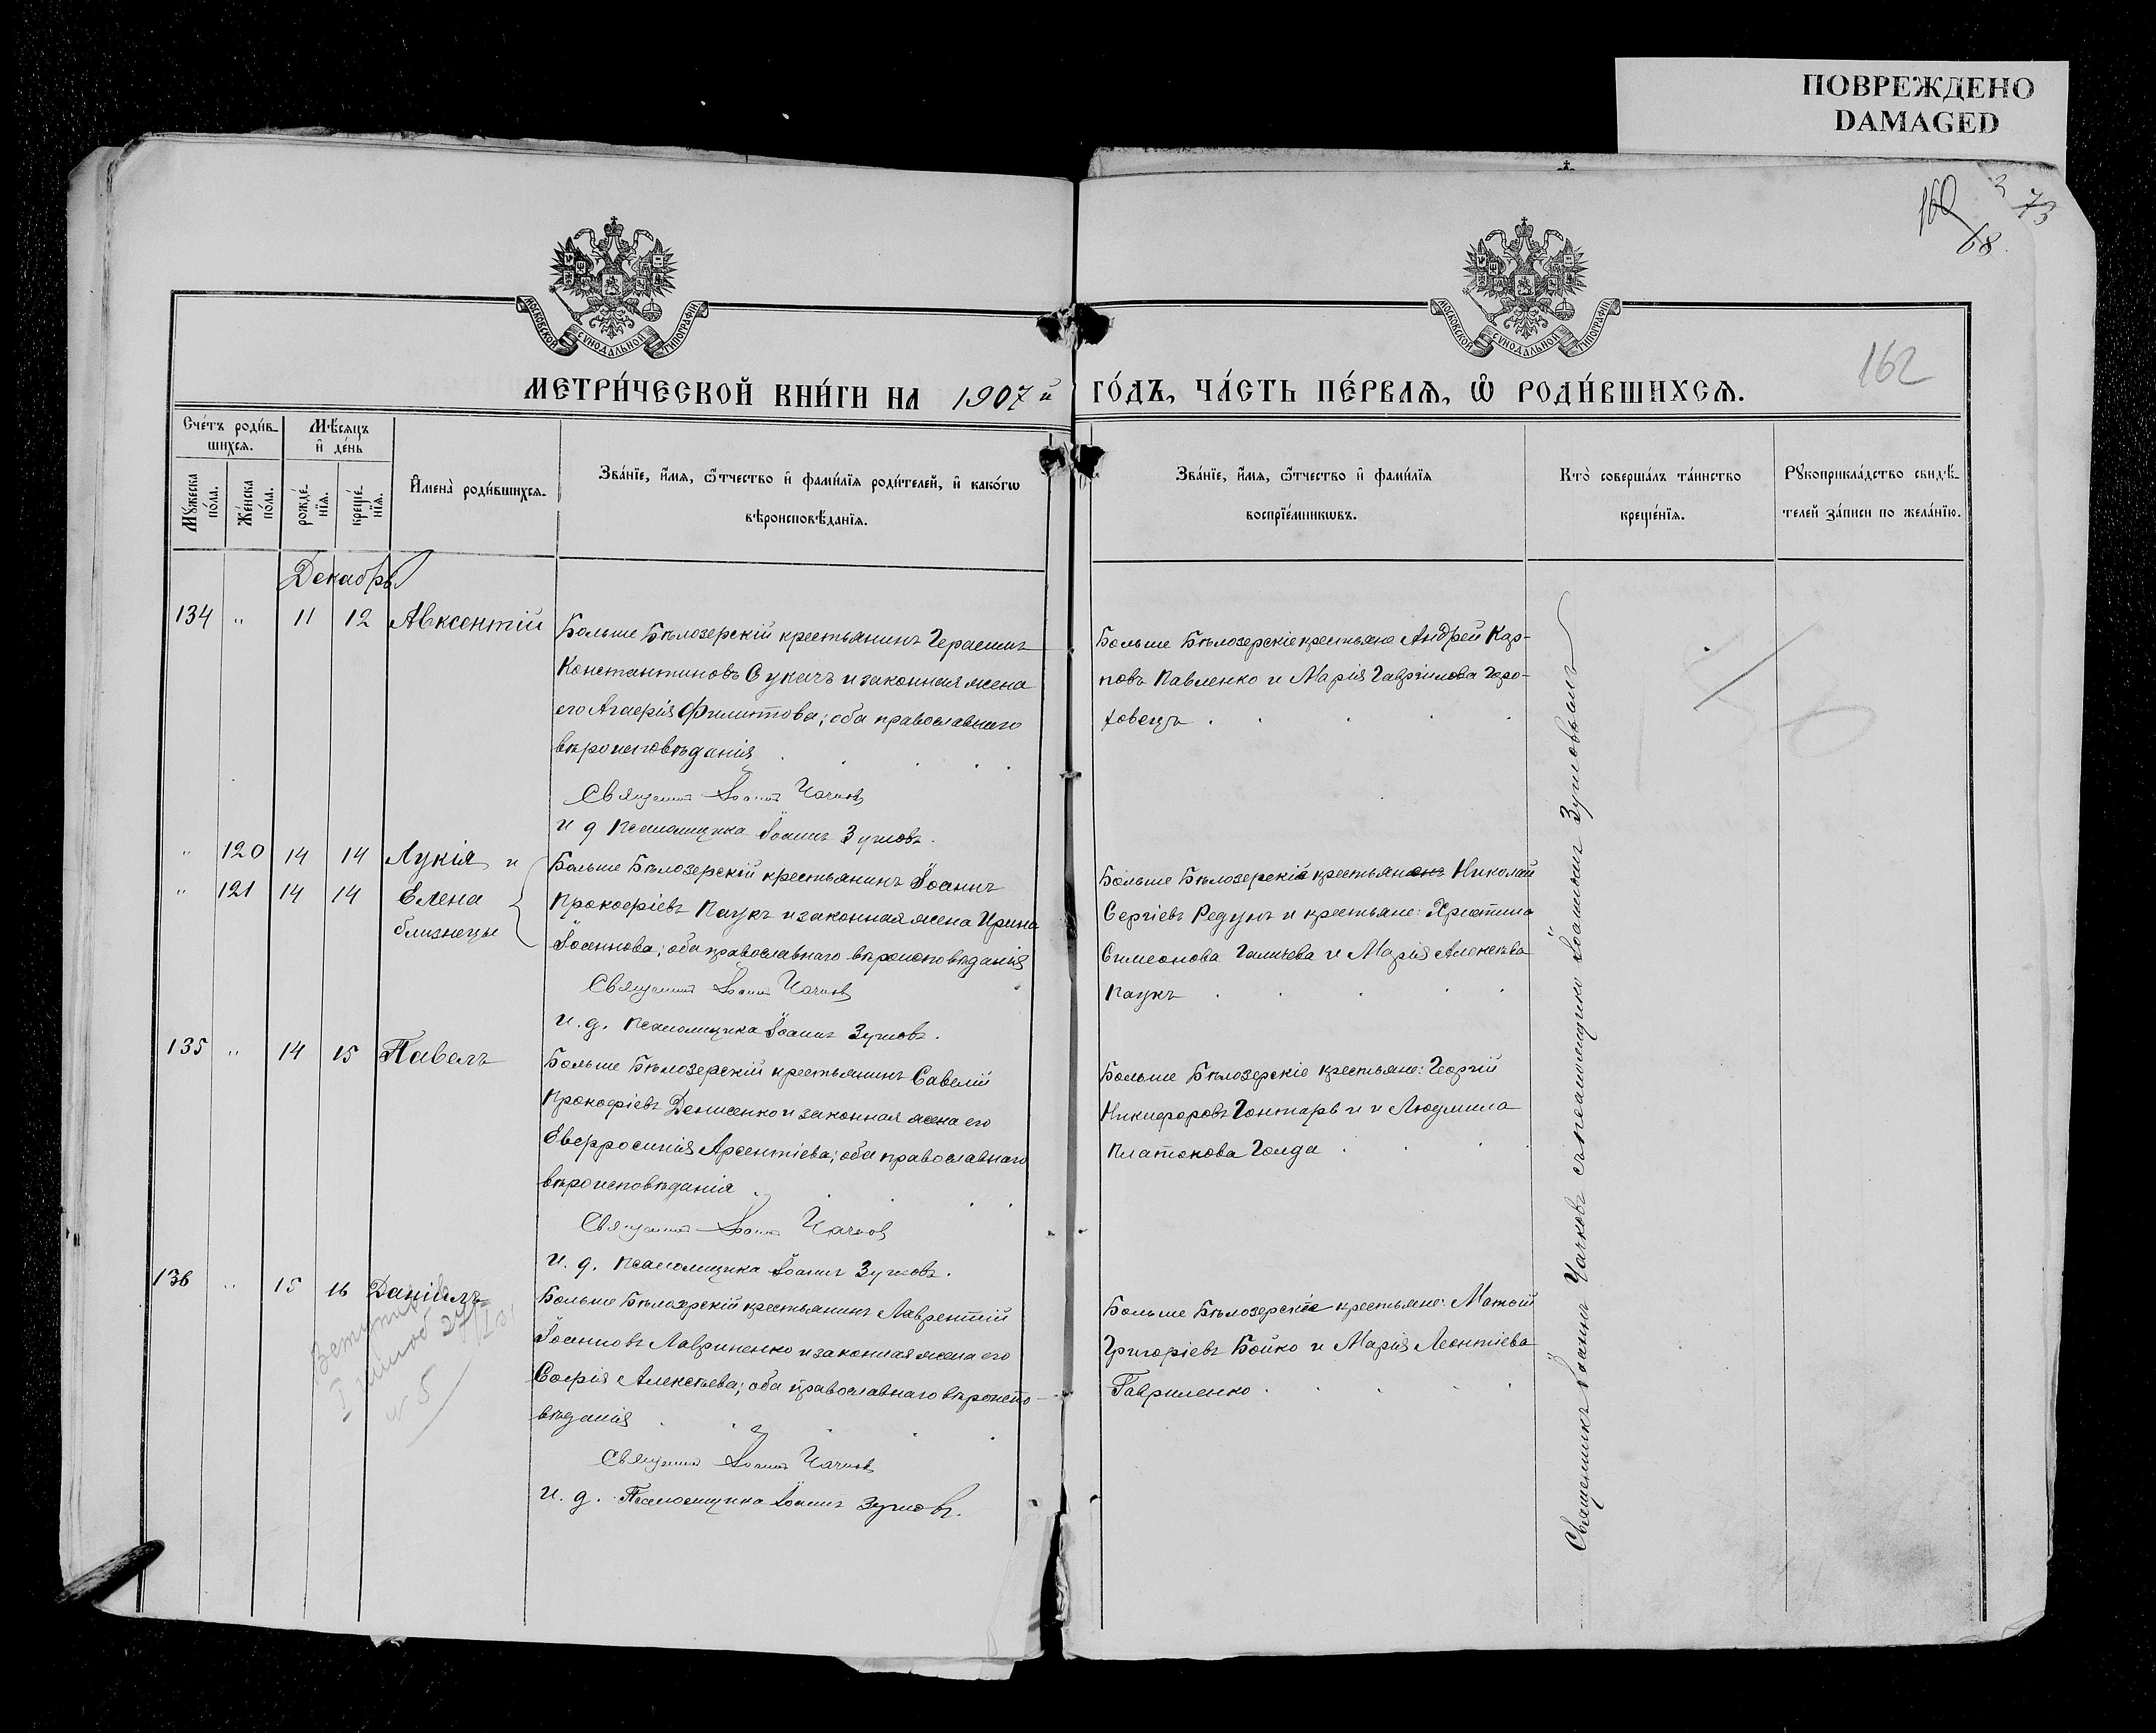 ПОВРЕЖДЕНО
DAMAGED
162
68
МОСКОВСКОЙ СѴНОДАЛЬНОЙ ТИПОГРАФІИ
МОСКОВСКОЙ СѴНОДАЛЬНОЙ ТИПОГРАФІИ
МЕТРИ́ЧЕСКОЙ КНИ́ГИ НА 1907й ГО́ДЪ, ЧА́СТЬ ПЕ́РВАѦ, Ѡ҆ РОДИ́ВШИХСѦ.
Сче́тъ роди́в-
шихсѧ.
Мѣ́сѧцъ
и҆ де́нь
Мꙋжеска
по́ла.
Же́нска
по́ла.
рожде́-
нїѧ.
креще́-
нїѧ.
И҆мена̀ роди́вшихсѧ.
Зва́нїе, и҆́мѧ, ѻ҆́тчество и҆ фами́лїѧ роди́телей, и҆ како́гѡ
вѣроисповѣ́данїѧ.
Зва́нїе, и҆́мѧ, ѻ҆́тчество и҆ фами́лїѧ
воспрїе́мникѡвъ.
Кто̀ соверша́лъ та́инство
креще́нїѧ.
Рꙋкоприкла́дство свидѣ́-
телей за́писи по жела́нїю.
Декабрь
134 " 11 12 Авксентій
Больше Бѣлозерскій крестьянинъ Герасимъ
Константиновъ Сукачъ и законная жена
его Агафія Филиппова; оба православнаго
вѣроисповѣданія
Священникъ Іоаннъ Чачковъ
и д псаломщика Іоаннъ Зуиловъ.
Больше Бѣлозерскіе крестьяне Андрей Кар-
повъ Павленко и Марія Гавріилова Горо-
ховецъ
" 120 14 14 Лукія и
" 121 14 14 Елена
близнецы
Больше Бѣлозерскій крестьянинъ Іоаннъ
Прокофіевъ Паукъ и законная жена Ирина
Іосифова; оба православнаго вѣроисповѣданія
Священникъ Іоаннъ Чачковъ
и. д. псаломщика Іоаннъ Зуиловъ.
Больше Бѣлозерскій крестьянинъ Николай
Сергіевъ Редунъ и крестьяне: Христина
Симеонова и Марія Алексѣва
Паукъ
135 " 14 15 Павелъ
Больше Бѣлозерскій крестьянинъ Савелій
Прокофіевъ Денисенко и законная жена его
Евфросинія Арсентіева; оба православнаго
вѣроисповѣданія
Священникъ Іоаннъ Чачковъ
И. д. псаломщика Іоаннъ Зуиловъ.
Больше Бѣлозерскіе крестьяне: Георгій
Никифоровъ Гонтарь и и Людмила
Платонова
136 " 15 16 Даніилъ
Больше Бѣлозерскій крестьянинъ Лаврентій
Іосифовъ Лавриненко и законная жена его
Софія Алексѣева; оба православнаго вѣроиспо-
вѣданія
Священникъ Іоаннъ Чачковъ
И. д. Псаломщика Іоаннъ Зуиловъ.
Больше Бѣлозерскіе крестьяне: Матѳій
Григоріевъ Бойко и Марія Леонтіева
Гавриленко
Священникъ Іоаннъ Чачковъ съ псаломщикомъ Іоанномъ Зуиловымъ